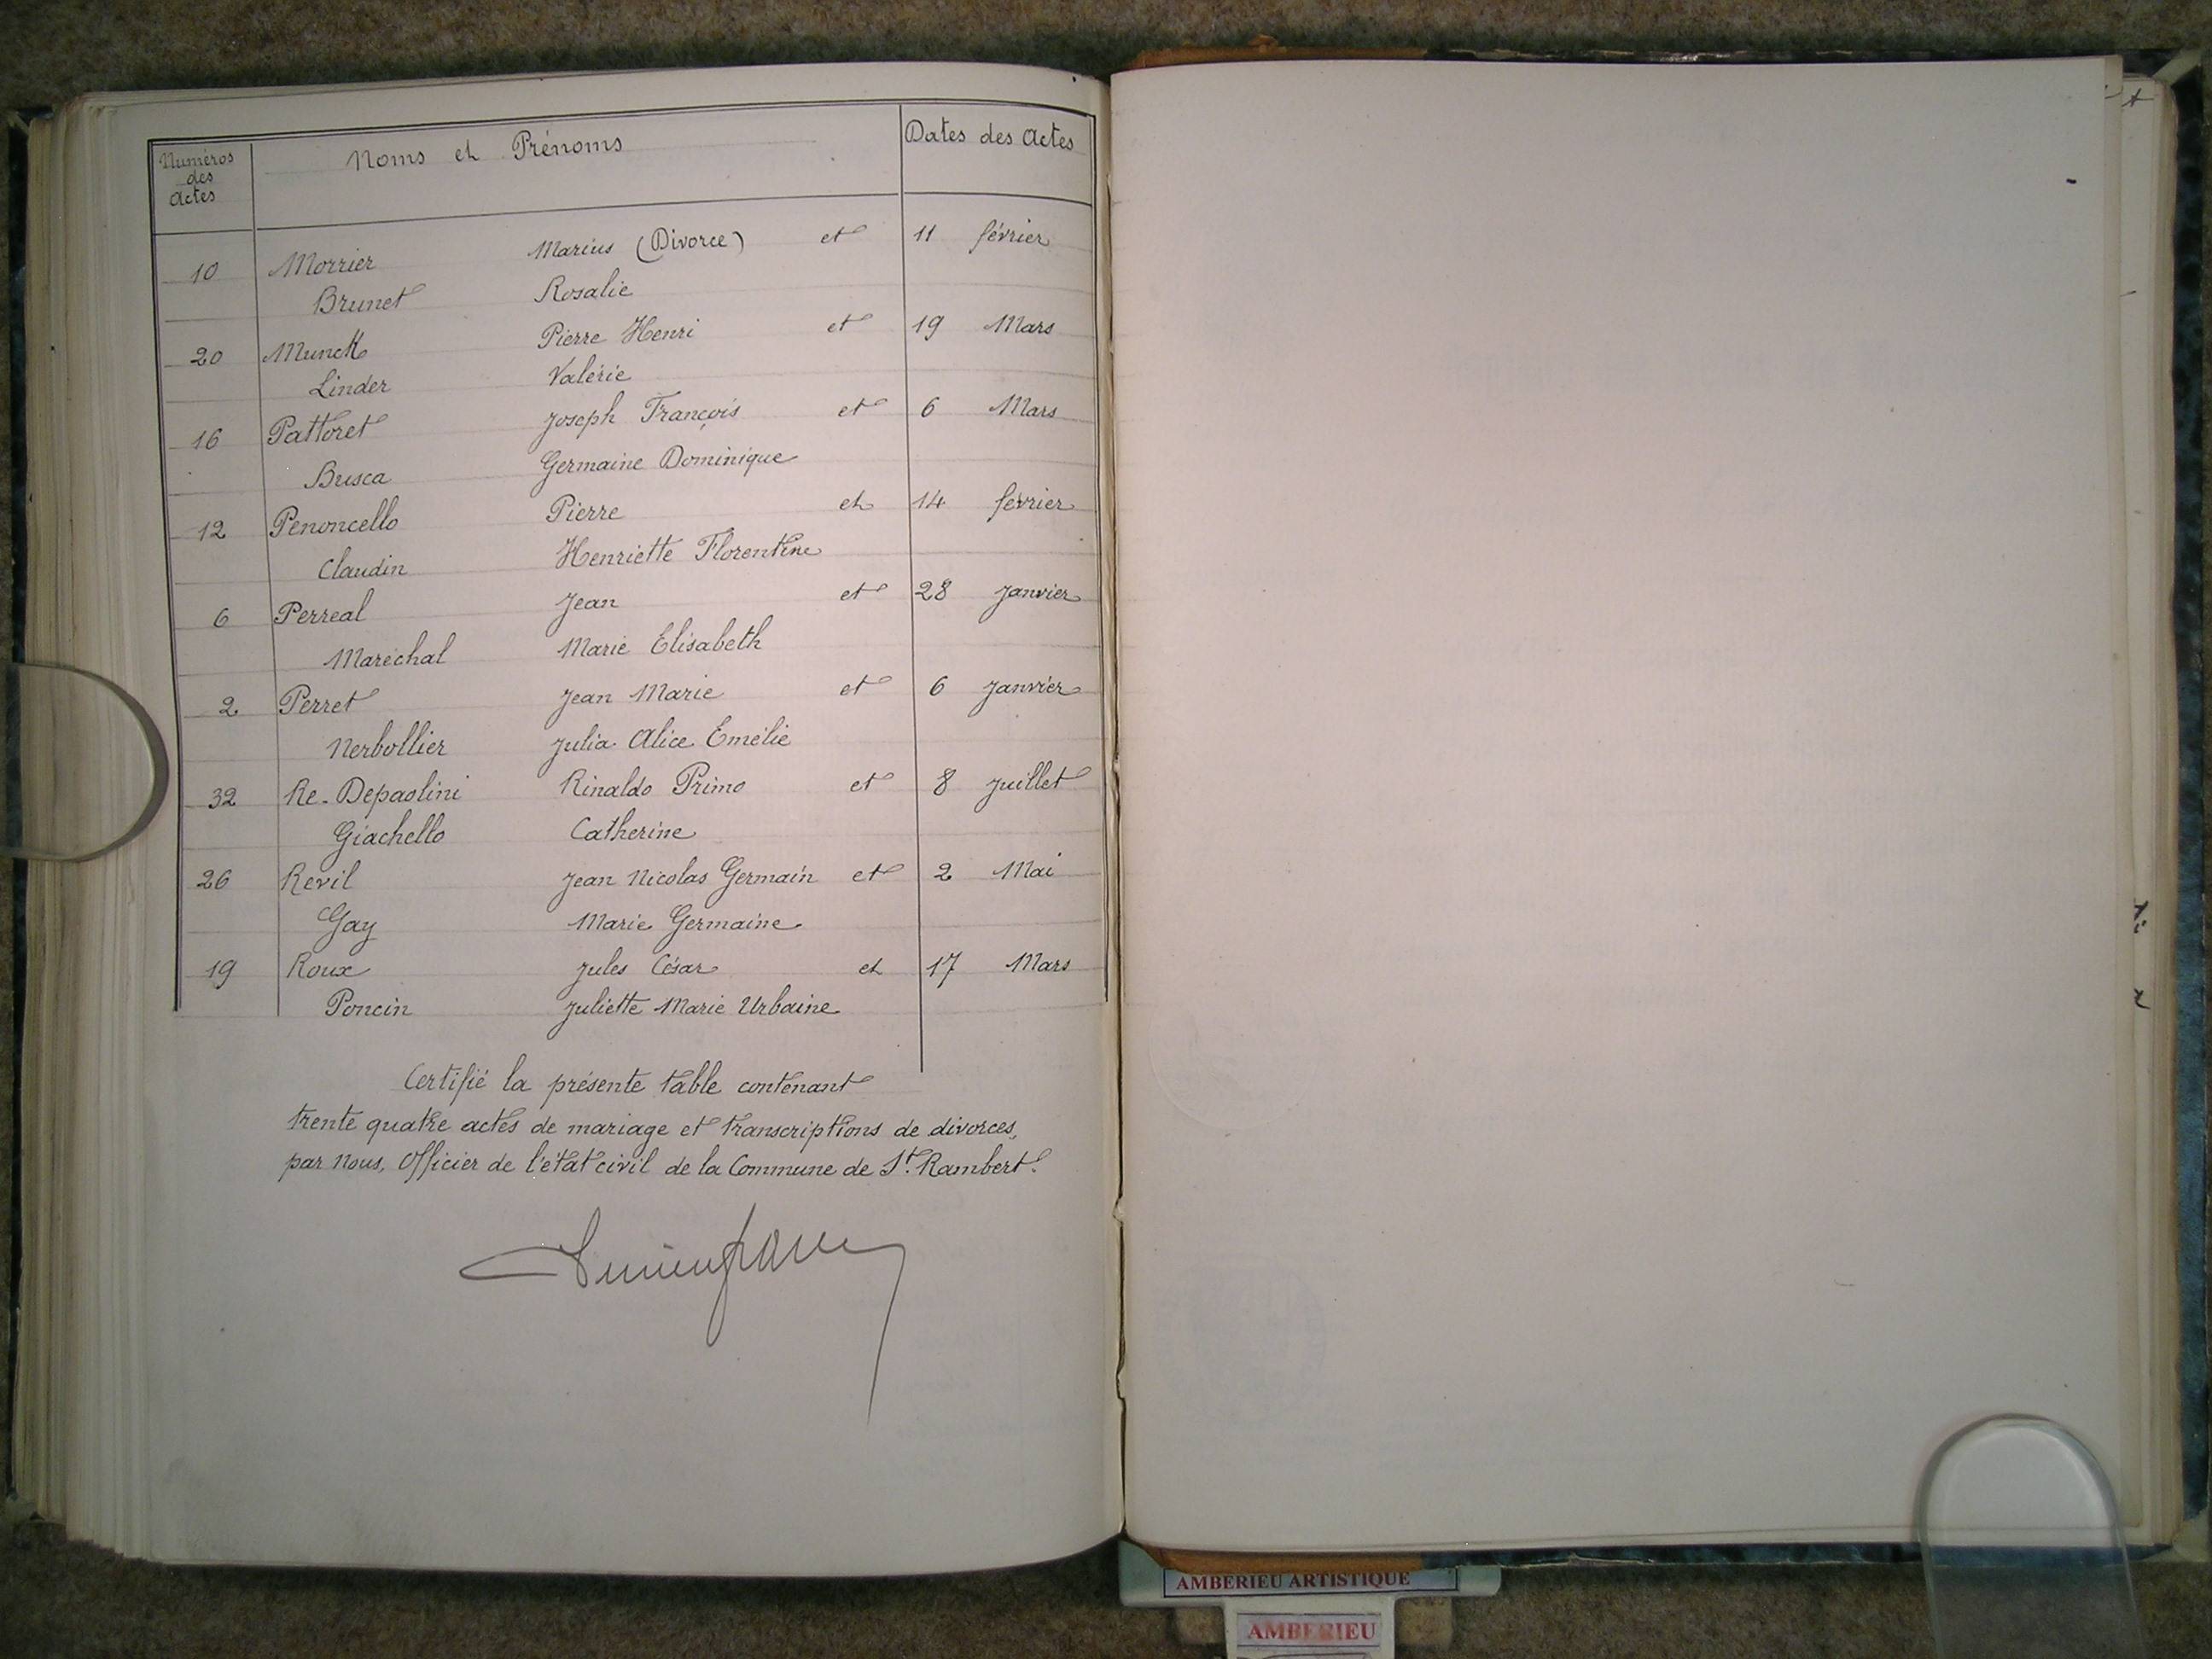 Numéros des Actes Noms et Prénoms Dates des Actes
10 Morrier Marius (Divorce) et 11 février
Brunet Rosalie
20 Munck Pierre Henri et 19 Mars
Linder Valérie
16 Pattoret Joseph François et 6 Mars
Busca Germaine Dominique
12 Penoncello Pierre et 14 février
Claudin Henriette Florentine
6 Perreal Jean et 28 Janvier
Maréchal Marie Elisabeth
2 Perret Jean Marie et 6 Janvier
Nerbollier Julia Alice Emélie
32 Re-Depaolini Rinaldo Primo et 8 Juillet
Giachello Catherine
26 Revil Jean Nicolas Germain et 2 Mai
Gay Marie Germaine
19 Roux Jules César et 17 Mars
Poncin Juliette Marie Urbaine
Certifié la présente table contenant
trente quatre actes de mariage et transcriptions de divorces,
par Nous, Officier de l'état civil de la Commune de St. Rambert.
AMBERIEU ARTISTIQUE
AMBERIEU